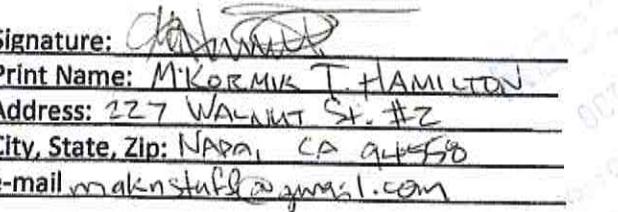 Signature:
Print Name: M'KORMIK T. HAMILTON
Address: 227 WALNUT St. #2
City, State, Zip: NAPA, CA 94558
e-mail maknstuff@gmail.com
OCT